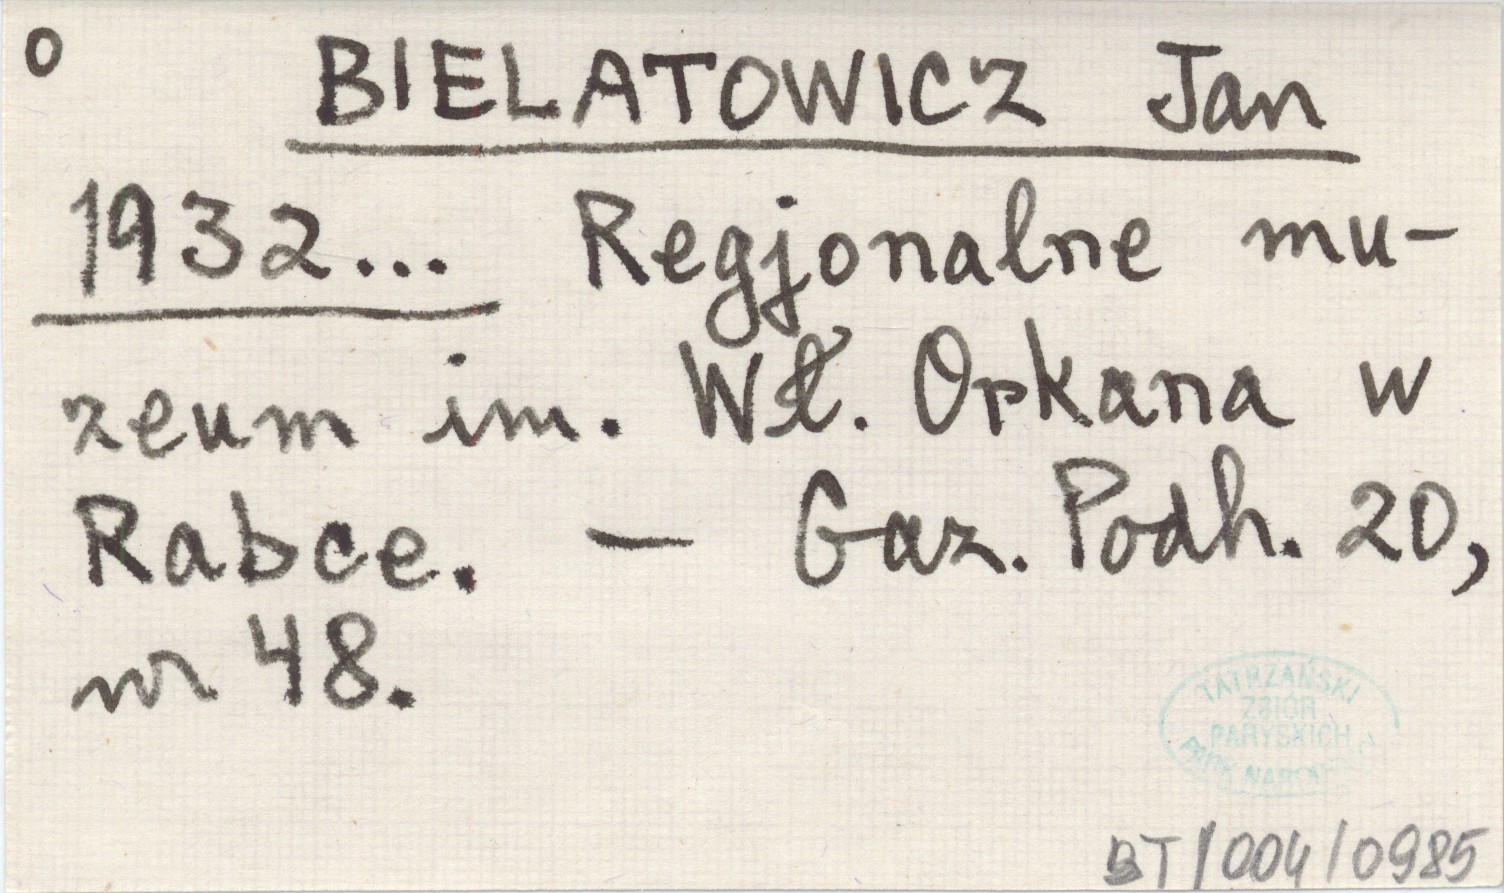 o
BIELATOWICZ Jan
1932... Regjonalne mu-
zeum im. Wł. Orkana w
Rabce. — Gaz. Podh. 20,
nr 48.
TATRZAŃSKI
ZBIÓR
PARYSKICH
PARK
BT/004/0985